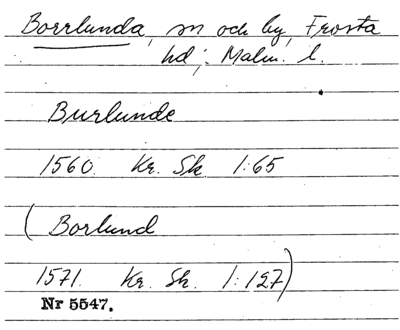 Borrlunda, sn och by, Frosta
hd; Malm. l.
Burlunde
1560. Kr. Sk 1:65
(Borlund
1571. Kr. Sk. 1:127)
Nr 5547.